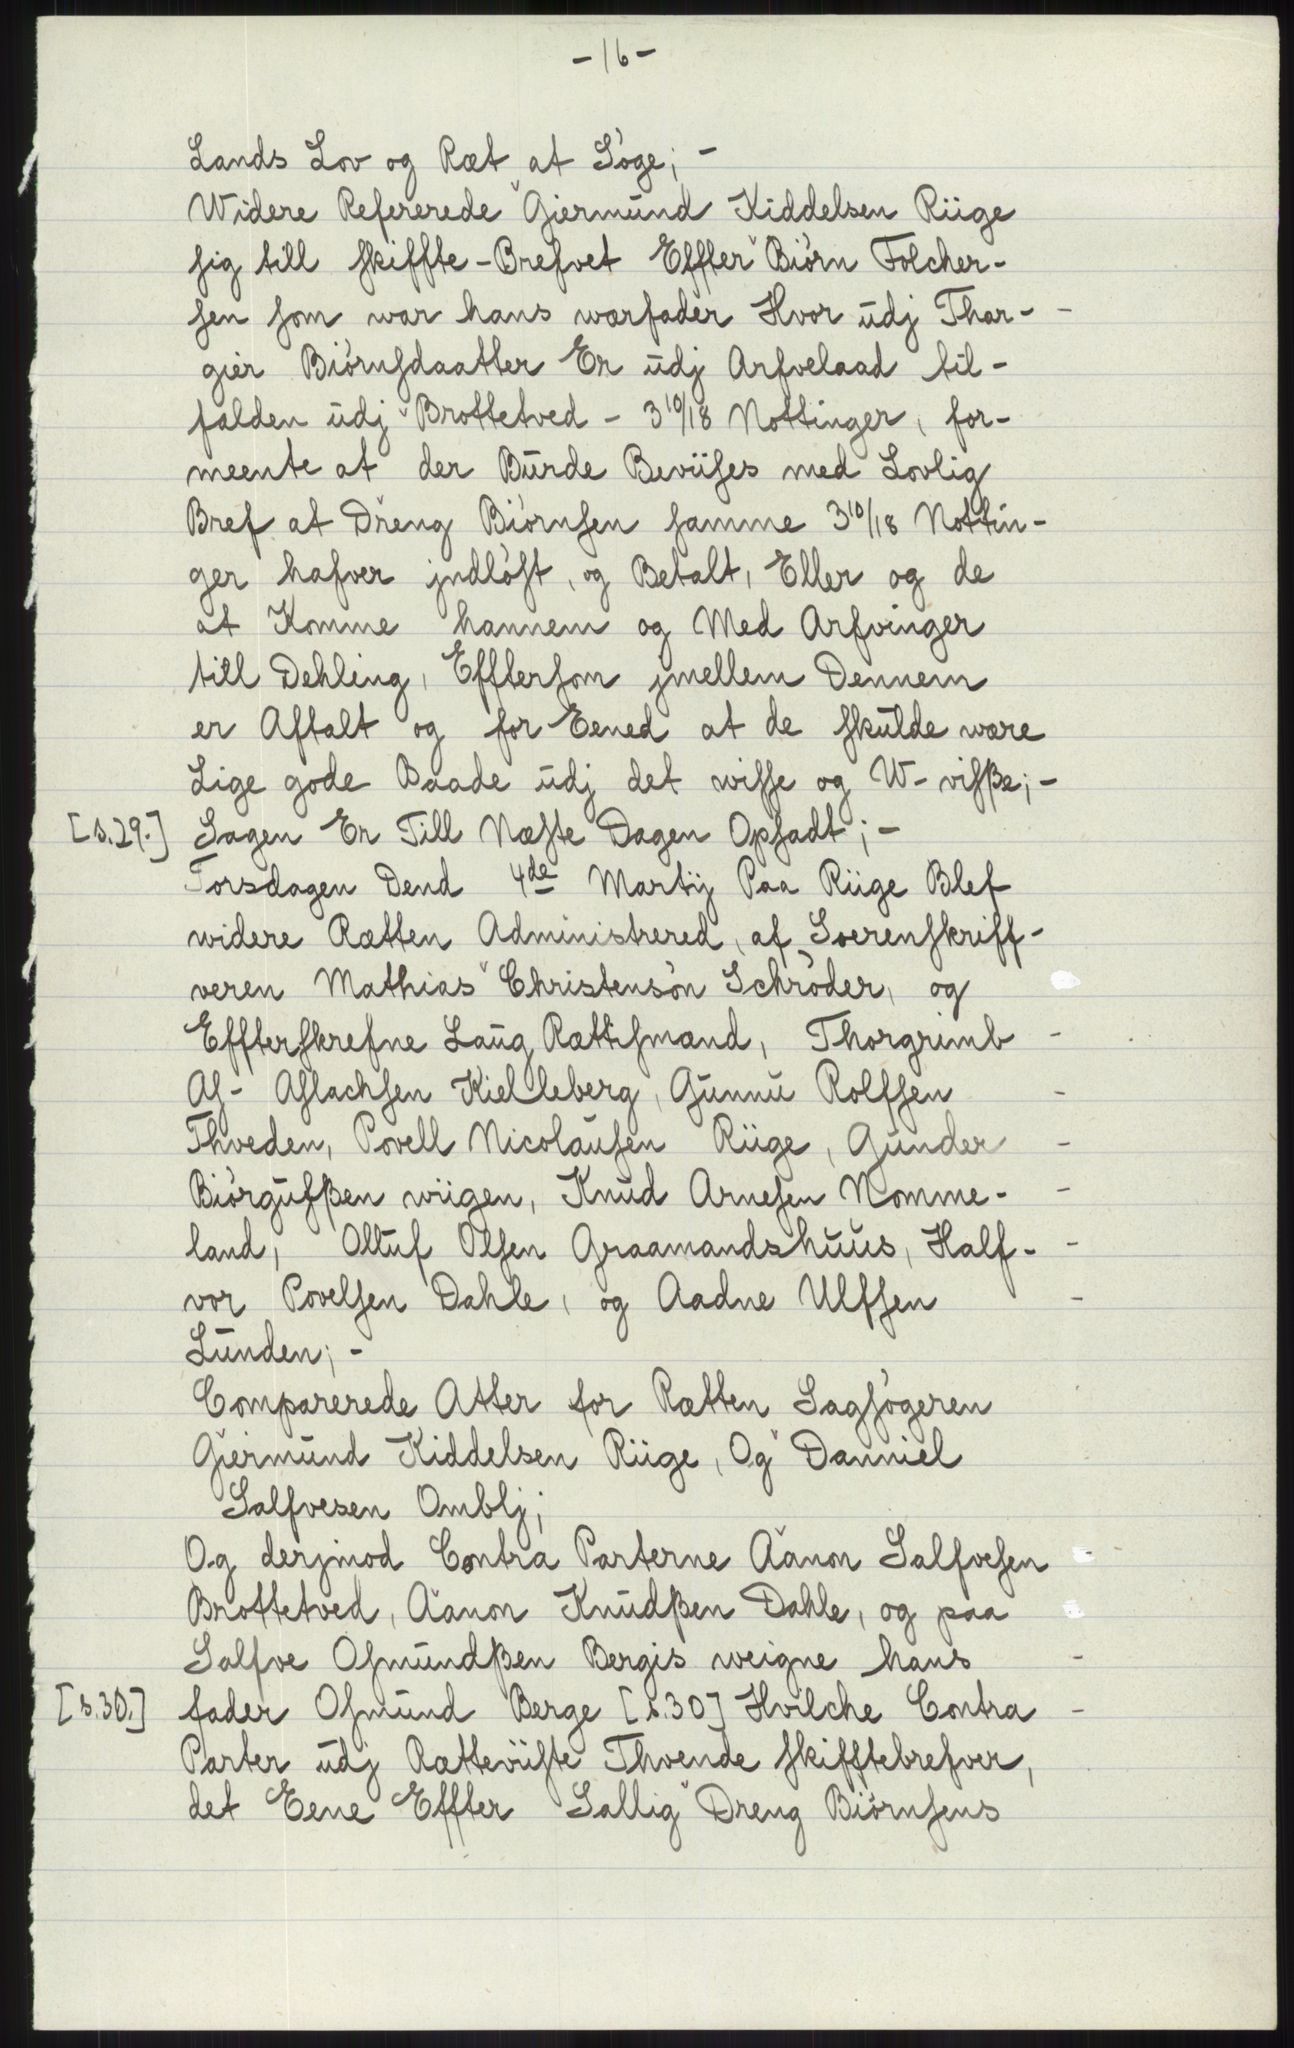 -16-
Lands Lov og Ræt at Søge; -
Widere Refererede Giermund Kiddelsen Riige
sig till skiffte-Brefvet Effter Biørn Folcher-
sen som war hans wærfader Hvor udj Thar-
gier Biørnsdaatter Er udj Arfvelaad til-
falden udj Brottetved - 3 10/18 Nottinger, for-
meente at der Burde Beviises med Lovlig
Bref at Dreng Biørnsen samme 3 10/18 Nottin-
ger hafver jndløst, og Betalt, Eller og de
at Komme hannem og Med Arfvinger
till Dehling, Efftersom jmellem Dennem
er Aftalt og for Eened at de skulde wære
Lige gode Baade udj det wisse og W-visße; -
[s.29.] Sagen Er Till Næste Dagen Opsadt; -
Torsdagen Dend 4de Martij Paa Riige Blef
widere Rætten Administrered, af Soerenskriff-
veren Mathias Christensøn Schrøder, og
Effterskrefne Laug Rættismænd, Thorgrimb
As- Aslachsen Kielleberg, Gunnu Rolfsen
Thveden, Povell Nicolausen Riige, Gunder
Biørgufßen wiigen, Knud Arnesen Nomme-
land, Oluf Olsen Graamandshuus, Half-
vor Povelsen Dahle, og Aadne Ulfsen
Lunden; -
Comparerede Atter for Rætten Sagsøgeren
Giermund Kiddelsen Riige, Og Danniel
Salfvesen Omblj;
Og derjmod Contra Parterne Aanon Salfvesen
Brottetved, Aanon Knudßen Dahle, og paa
Salfve Osmundßen Bergis weigne hans
[s.30.] fader Osmund Berge [s.30] Hvilche Contra
Parter udj Rætteviiste Thvende skifftebrefver,
det Eene Effter Sallig Dreng Biørnsens